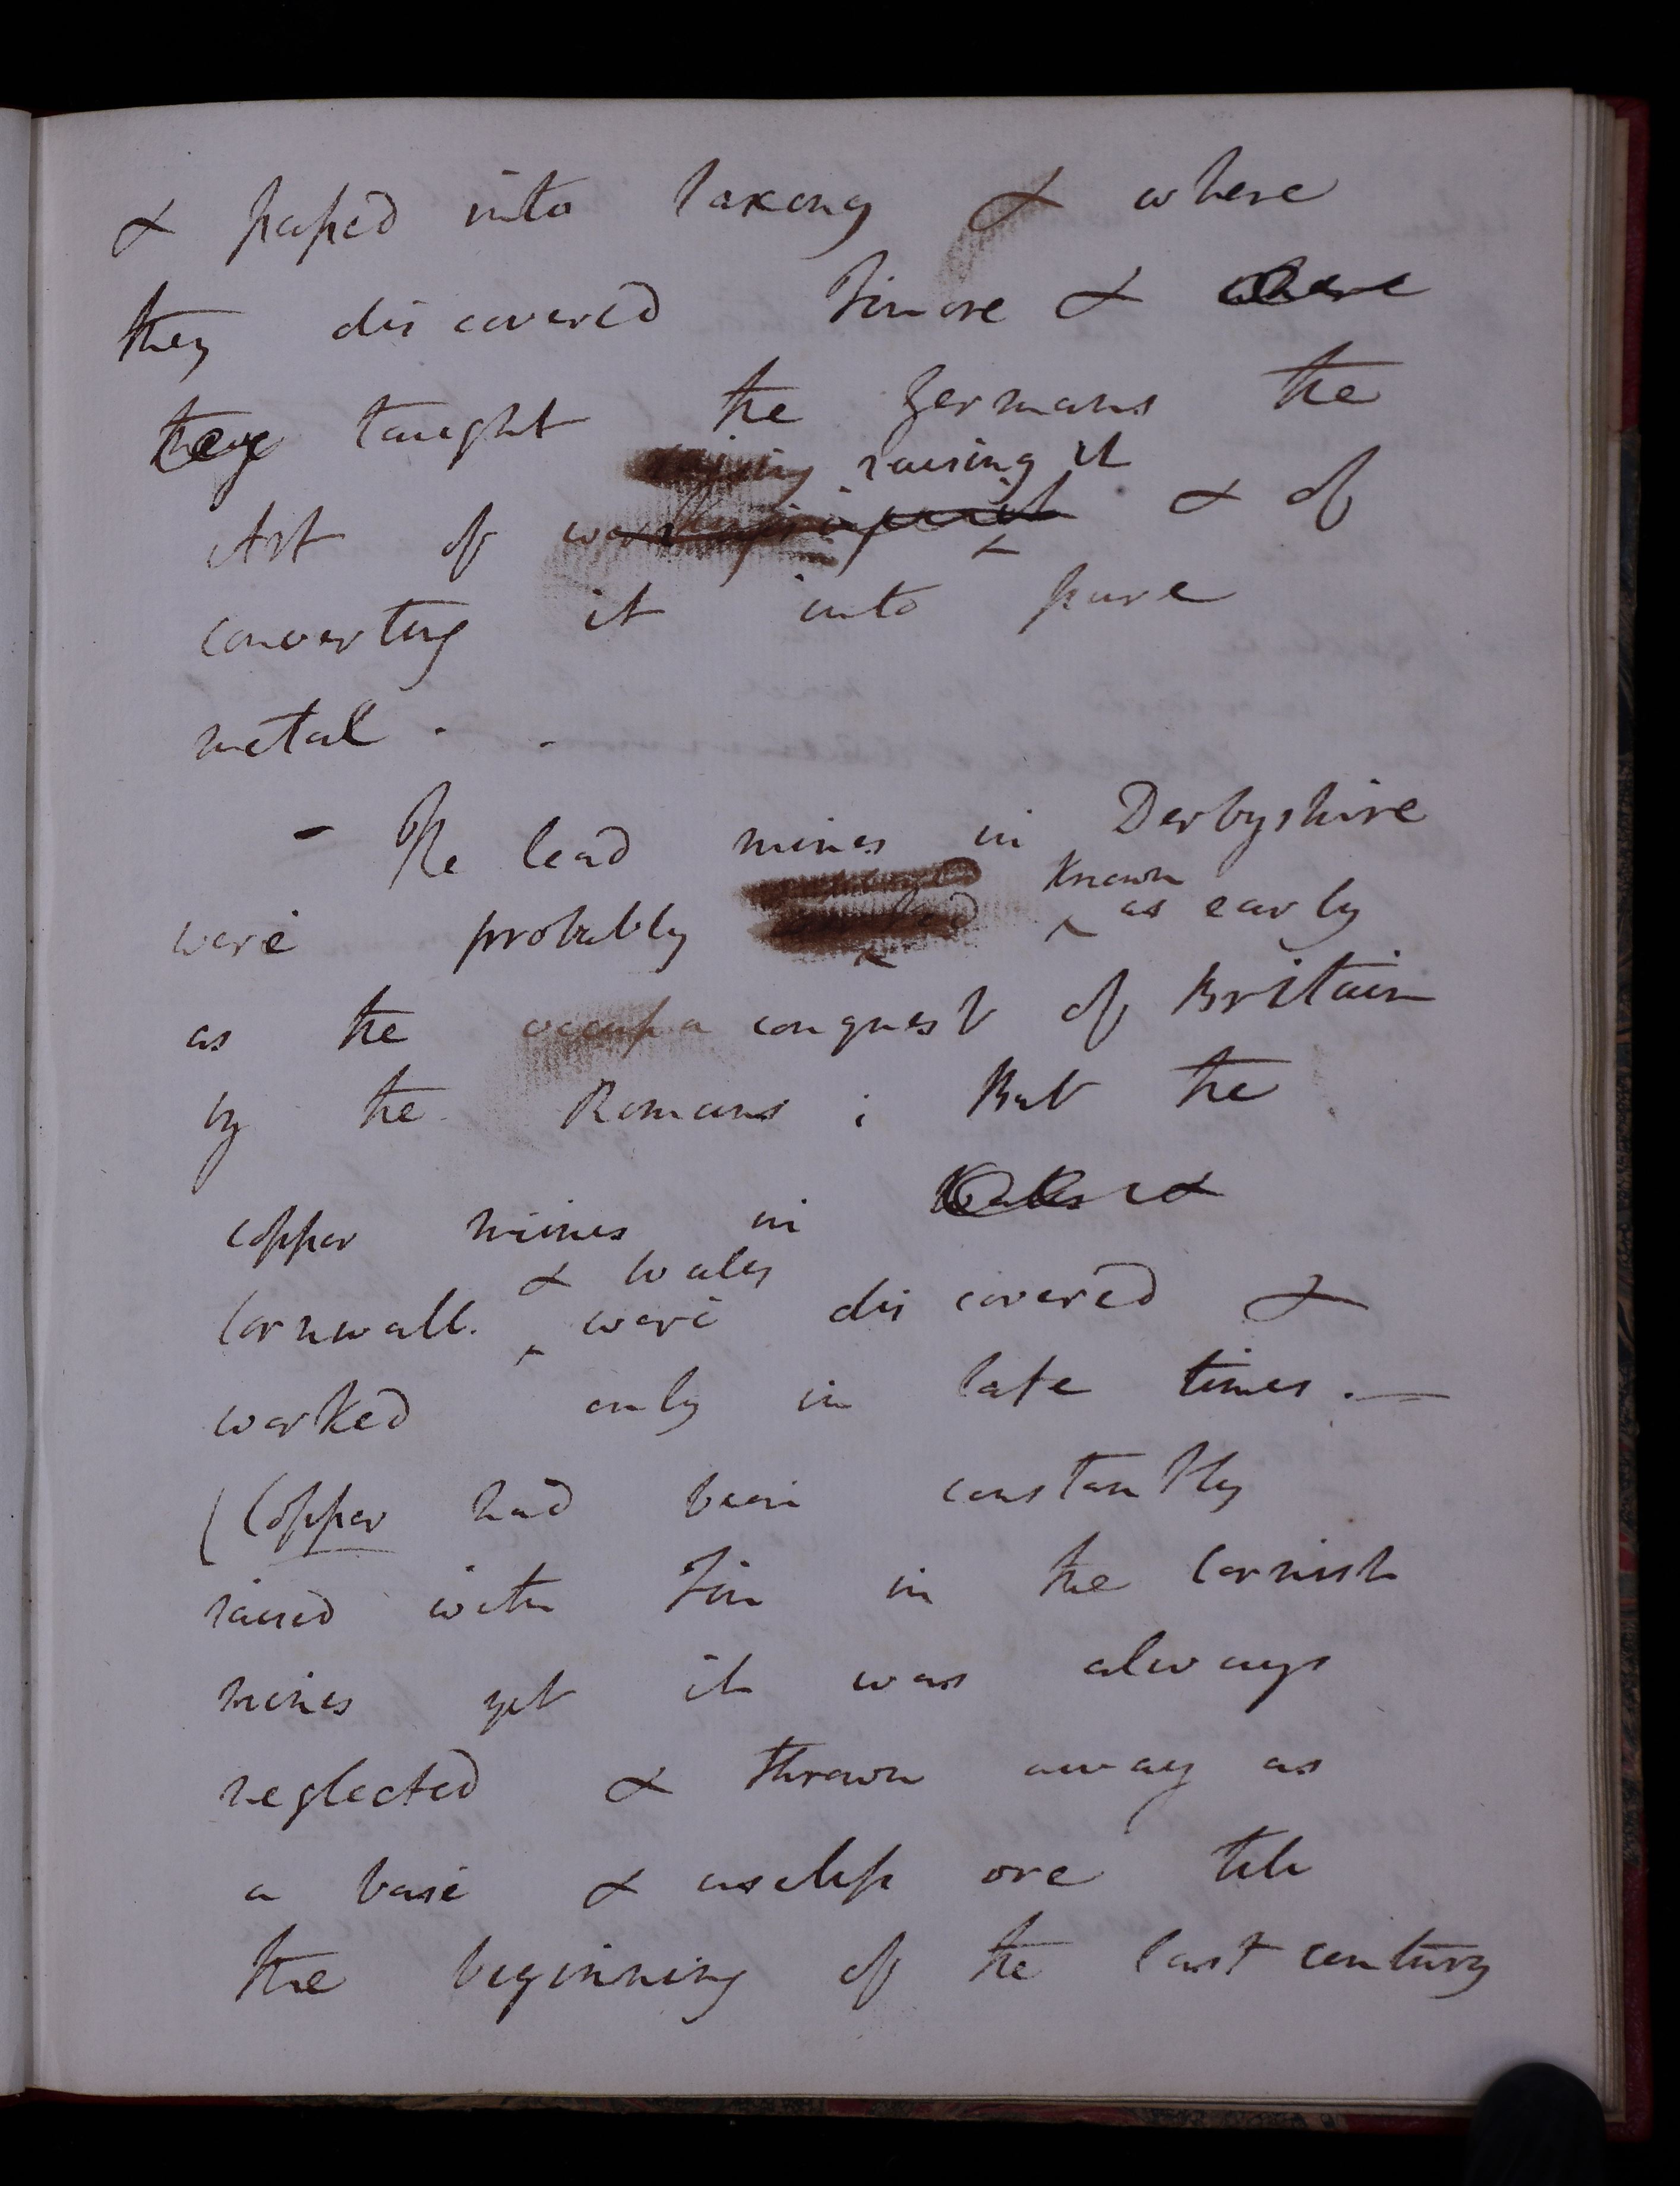 & passed into Saxony & where
they discovered Tin ore & where
they taught the Germans the
raising it
Art of & of
converting it into pure
metal. -
- The lead mines in Derbyshire
known
were probably as early
as the occupa conquest of Britain
by the Romans; But the
copper mines in Wales &
& Wales
Cornwall. were discovered &
worked only in late times. —
(Copper had been constantly
raised with Tin in the Cornish
mines yet it was always
neglected & thrown away as
a base & useless ore till
the beginning of the last century